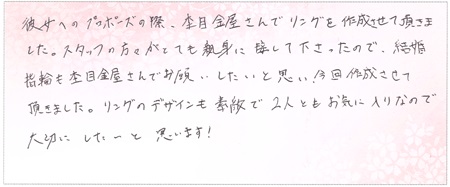 彼女へのプロポーズの際、杢目金屋さんでリングを作成させて頂きま
した。スタッフの方々がとても親身に接して下さったので、結婚
指輪も杢目金屋さんでお願いしたいと思い今回作成させて
頂きました。リングのデザインも素敵で2人ともお気に入りなので
大切にしたいと思います!